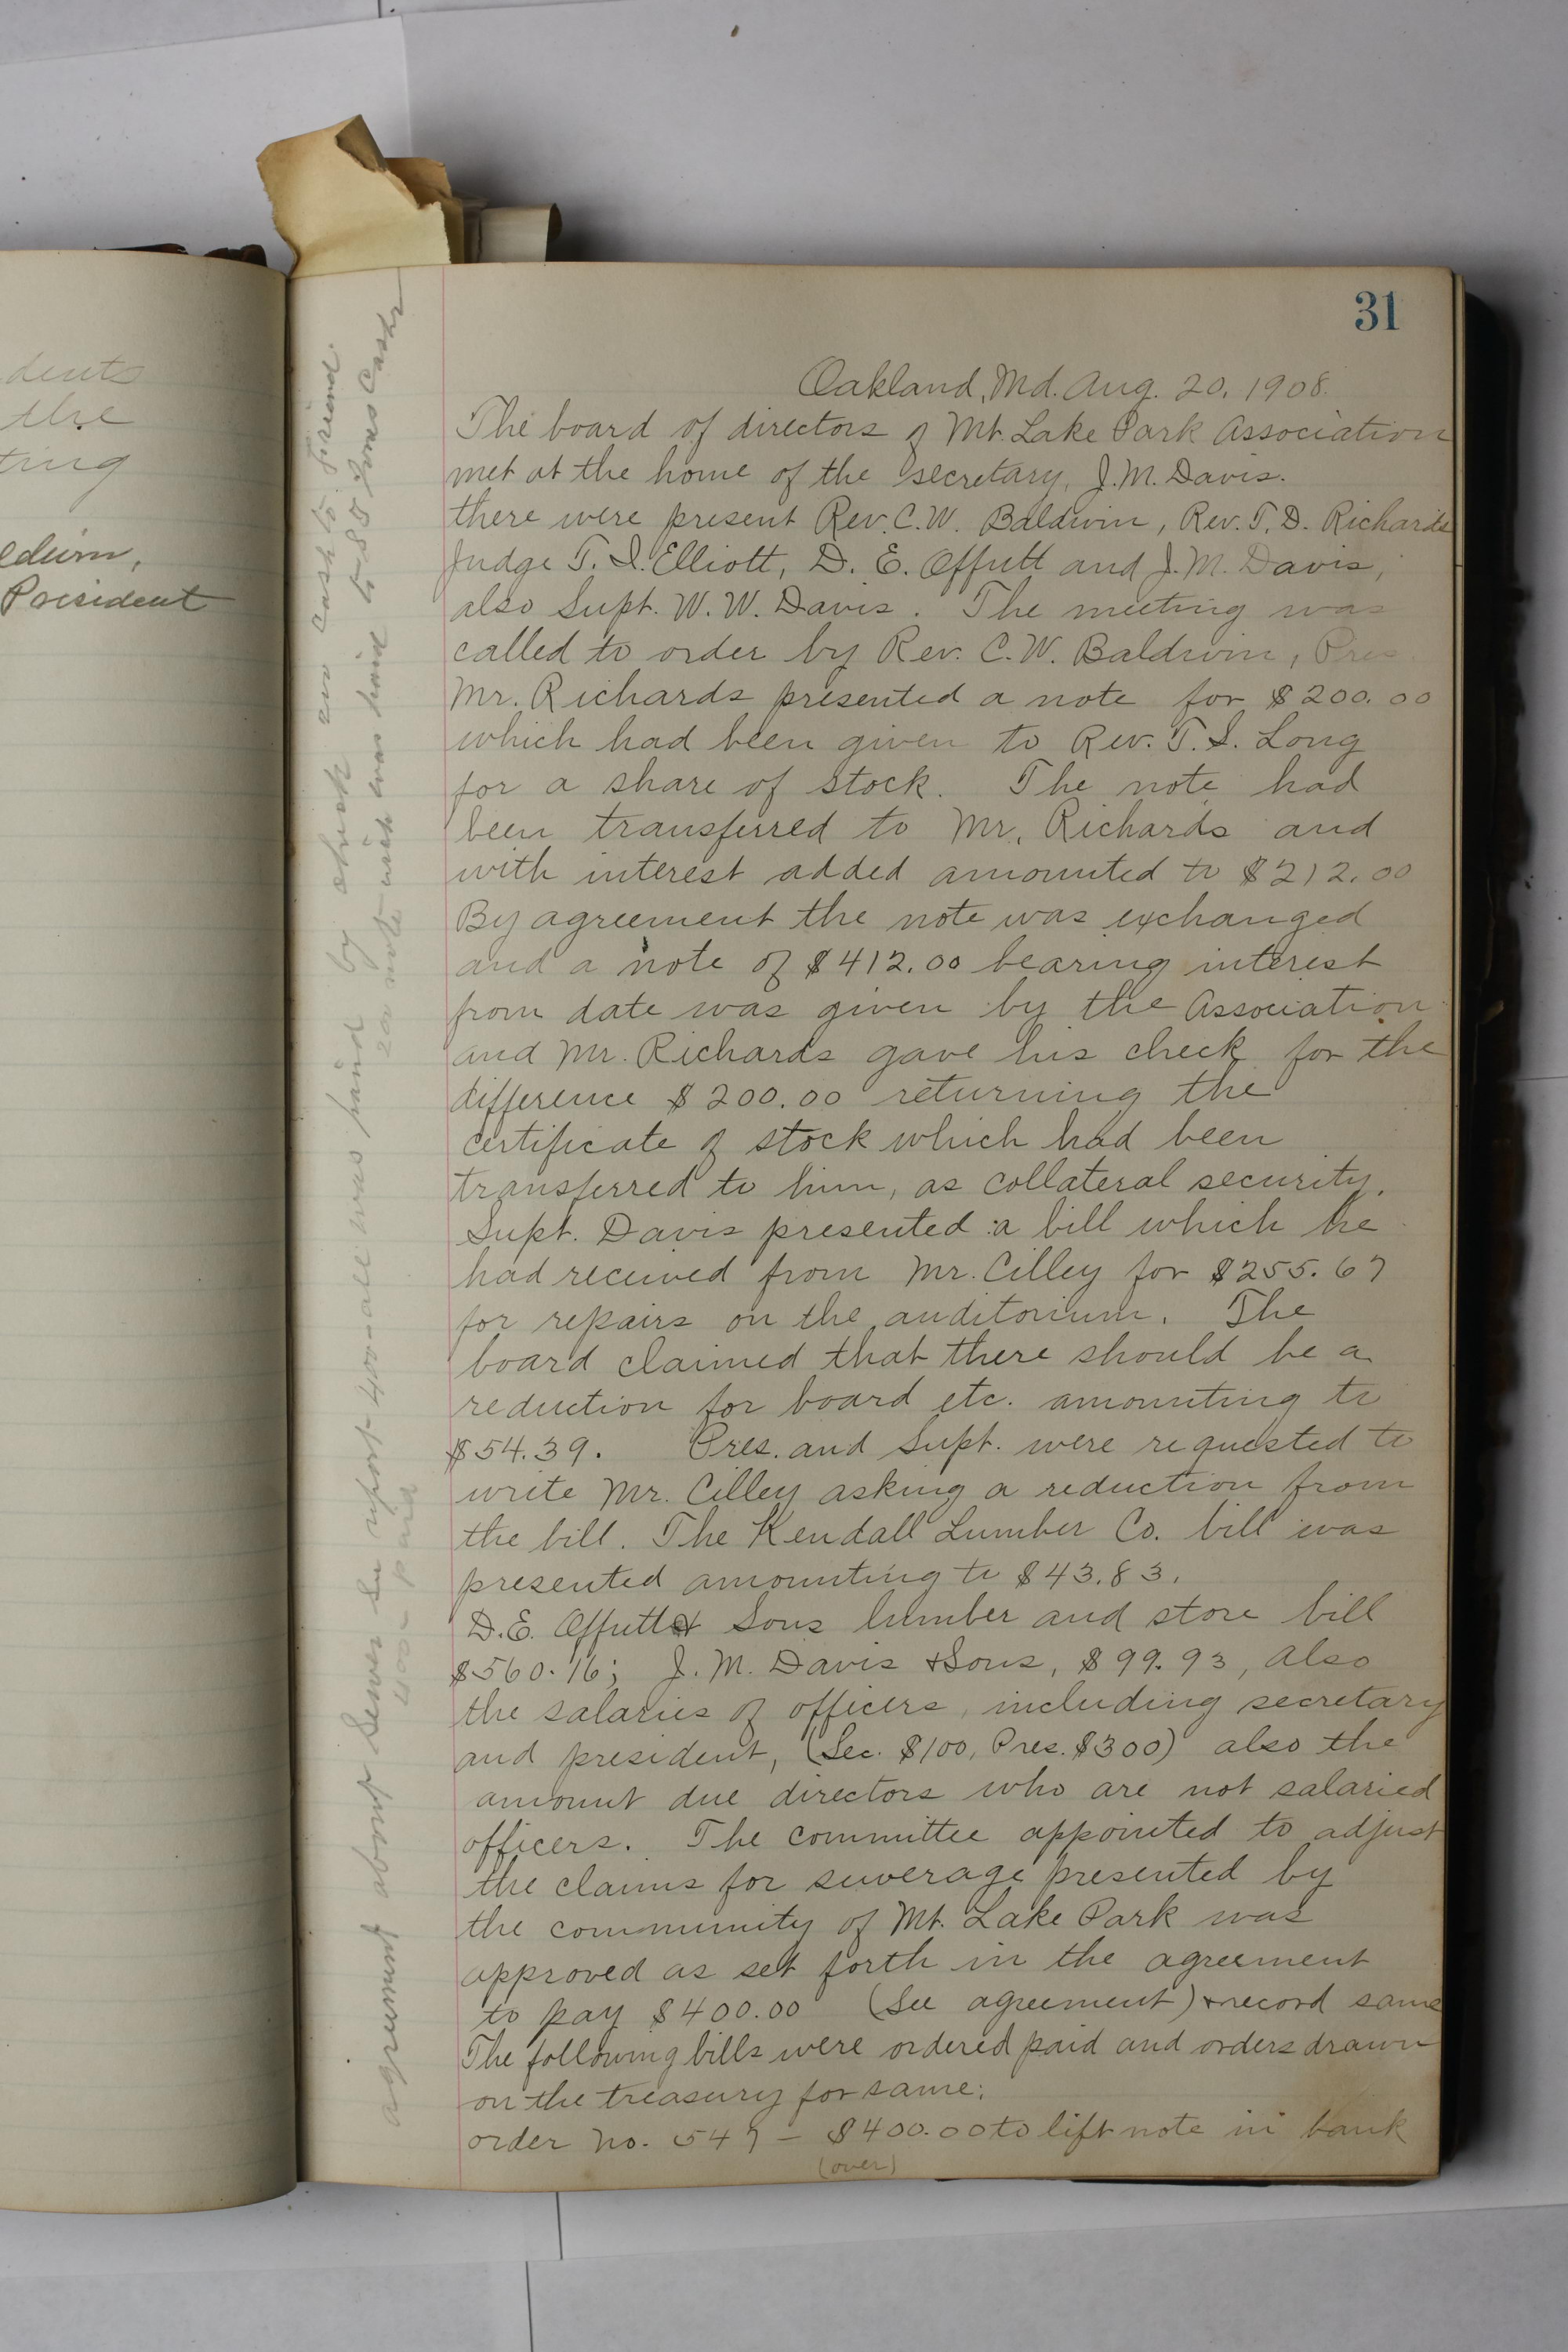 dents
the
ting
President
31
Oakland, Md. Aug. 20, 1908.
The board of directors of Mt. Lake Park Association
met at the home of the secretary, J. M. Davis.
there were present Rev. C. W. Baldwin, Rev. T. D. Richards
Judge T. I. Elliott, D. E. Offutt and J. M. Davis,
also Supt. W. W. Davis. The meeting was
called to order by Rev. C. W. Baldwin, Pres.
Mr. Richards presented a note for $200.00
which had been given to Rev. T. I. Long
for a share of stock. The note had
been transferred to Mr. Richards and
with interest added amounted to $212.00
By agreement the note was exchanged
and a note of $412.00 bearing interest
from date was given by the Association
and Mr. Richards gave his check for the
difference $200.00 returning the
certificate of stock which had been
transferred to him, as collateral security.
Supt. Davis presented a bill which he
had received from Mr. Cilley for $255.67
for repairs on the auditorium. The
board claimed that there should be a
reduction for board etc. amounting to
$54.39. Pres. and Supt. were requested to
write Mr. Cilley asking a reduction from
the bill. The Kendall Lumber Co. bill was
presented amounting to $43.83.
D. E. Offutt & Sons lumber and store bill
$560.16; J. M. Davis & Sons, $99.93, also
the salaries of officers, including secretary
and president, (Sec. $100, Pres. $300) also the
amount due directors who are not salaried
officers. The committee appointed to adjust
the claims for sewerage presented by
the community of Mt. Lake Park was
approved as set forth in the agreement
to pay $400.00 (See agreement) & record same
The following bills were ordered paid and orders drawn
on the treasury for same:
order No. 547 - $400.00 to lift note in bank
(over)
agreement about Sewer See report 400 all was paid by check 200 cash to Friend.
400 - paid 20 note wich was paid to